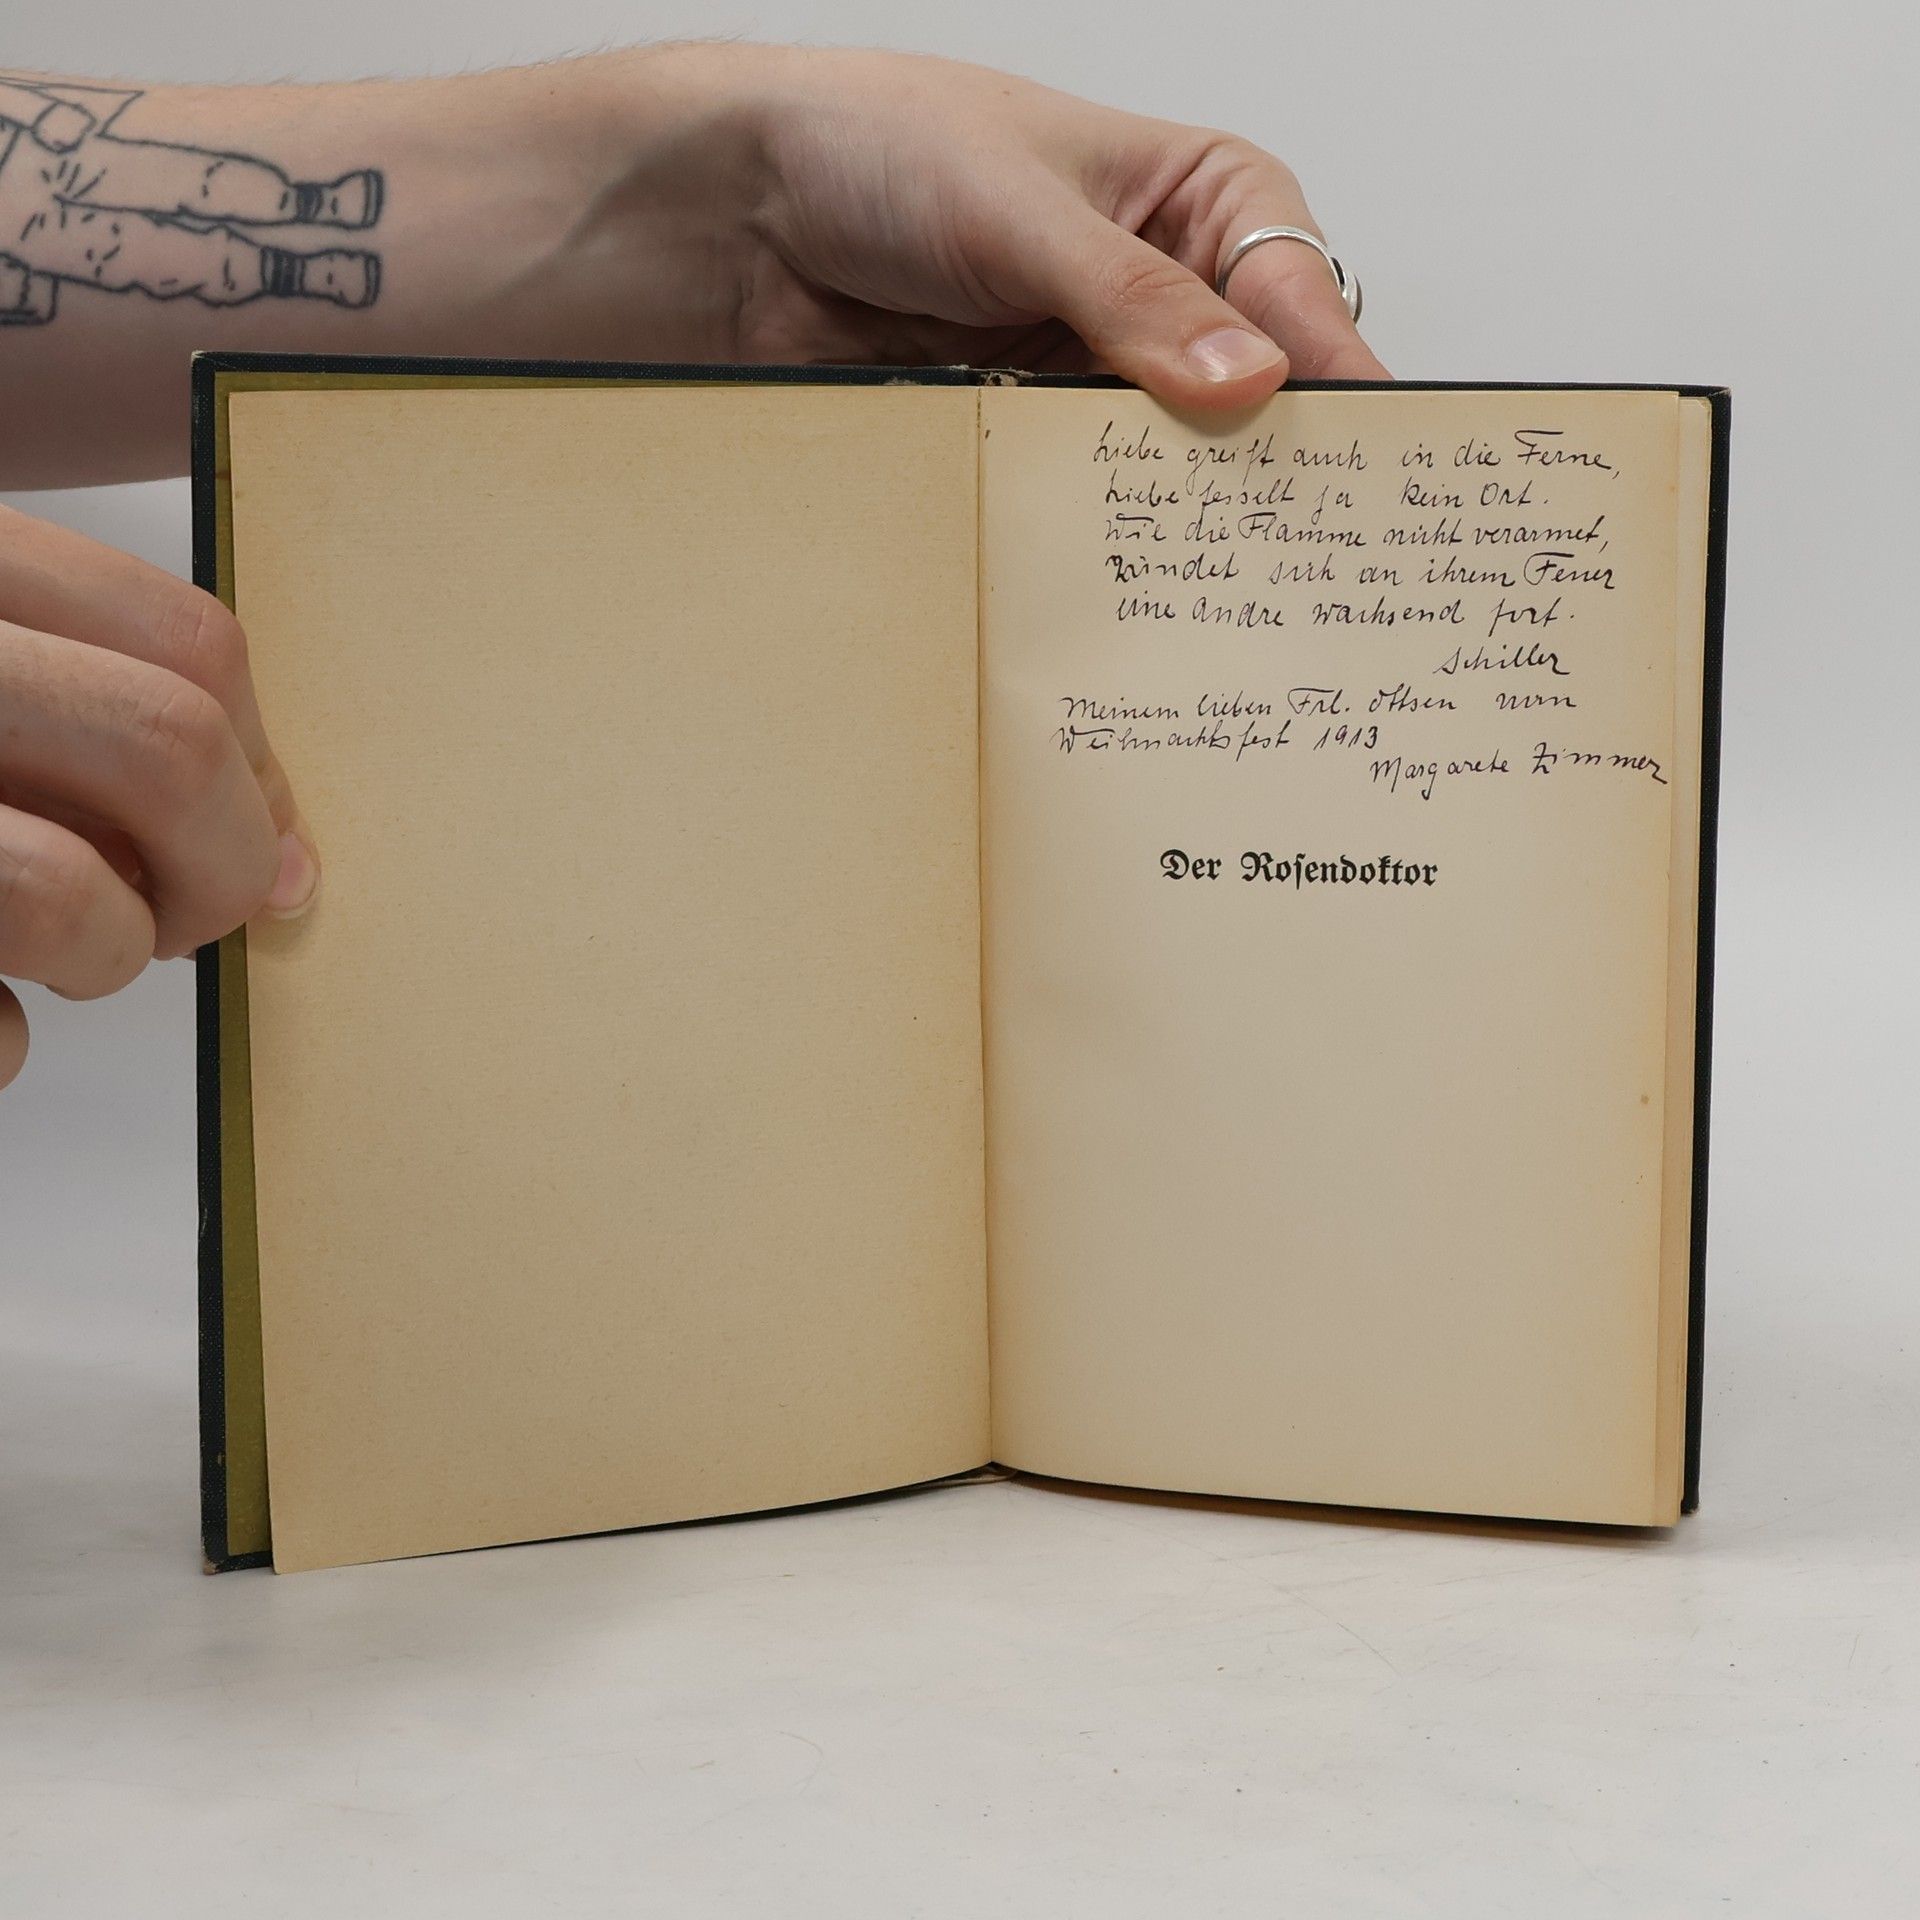 Liebe greift auch in die Ferne,
Liebe fesselt ja kein Ort.
Wie die Flamme nicht verarmet,
Zündet sich an ihrem Feuer
eine andre wachsend fort.
Schiller
Meinem lieben Frl. Ottsen
Weihnachtsfest 1913
Margarete Zimmer
Der Rosendoktor